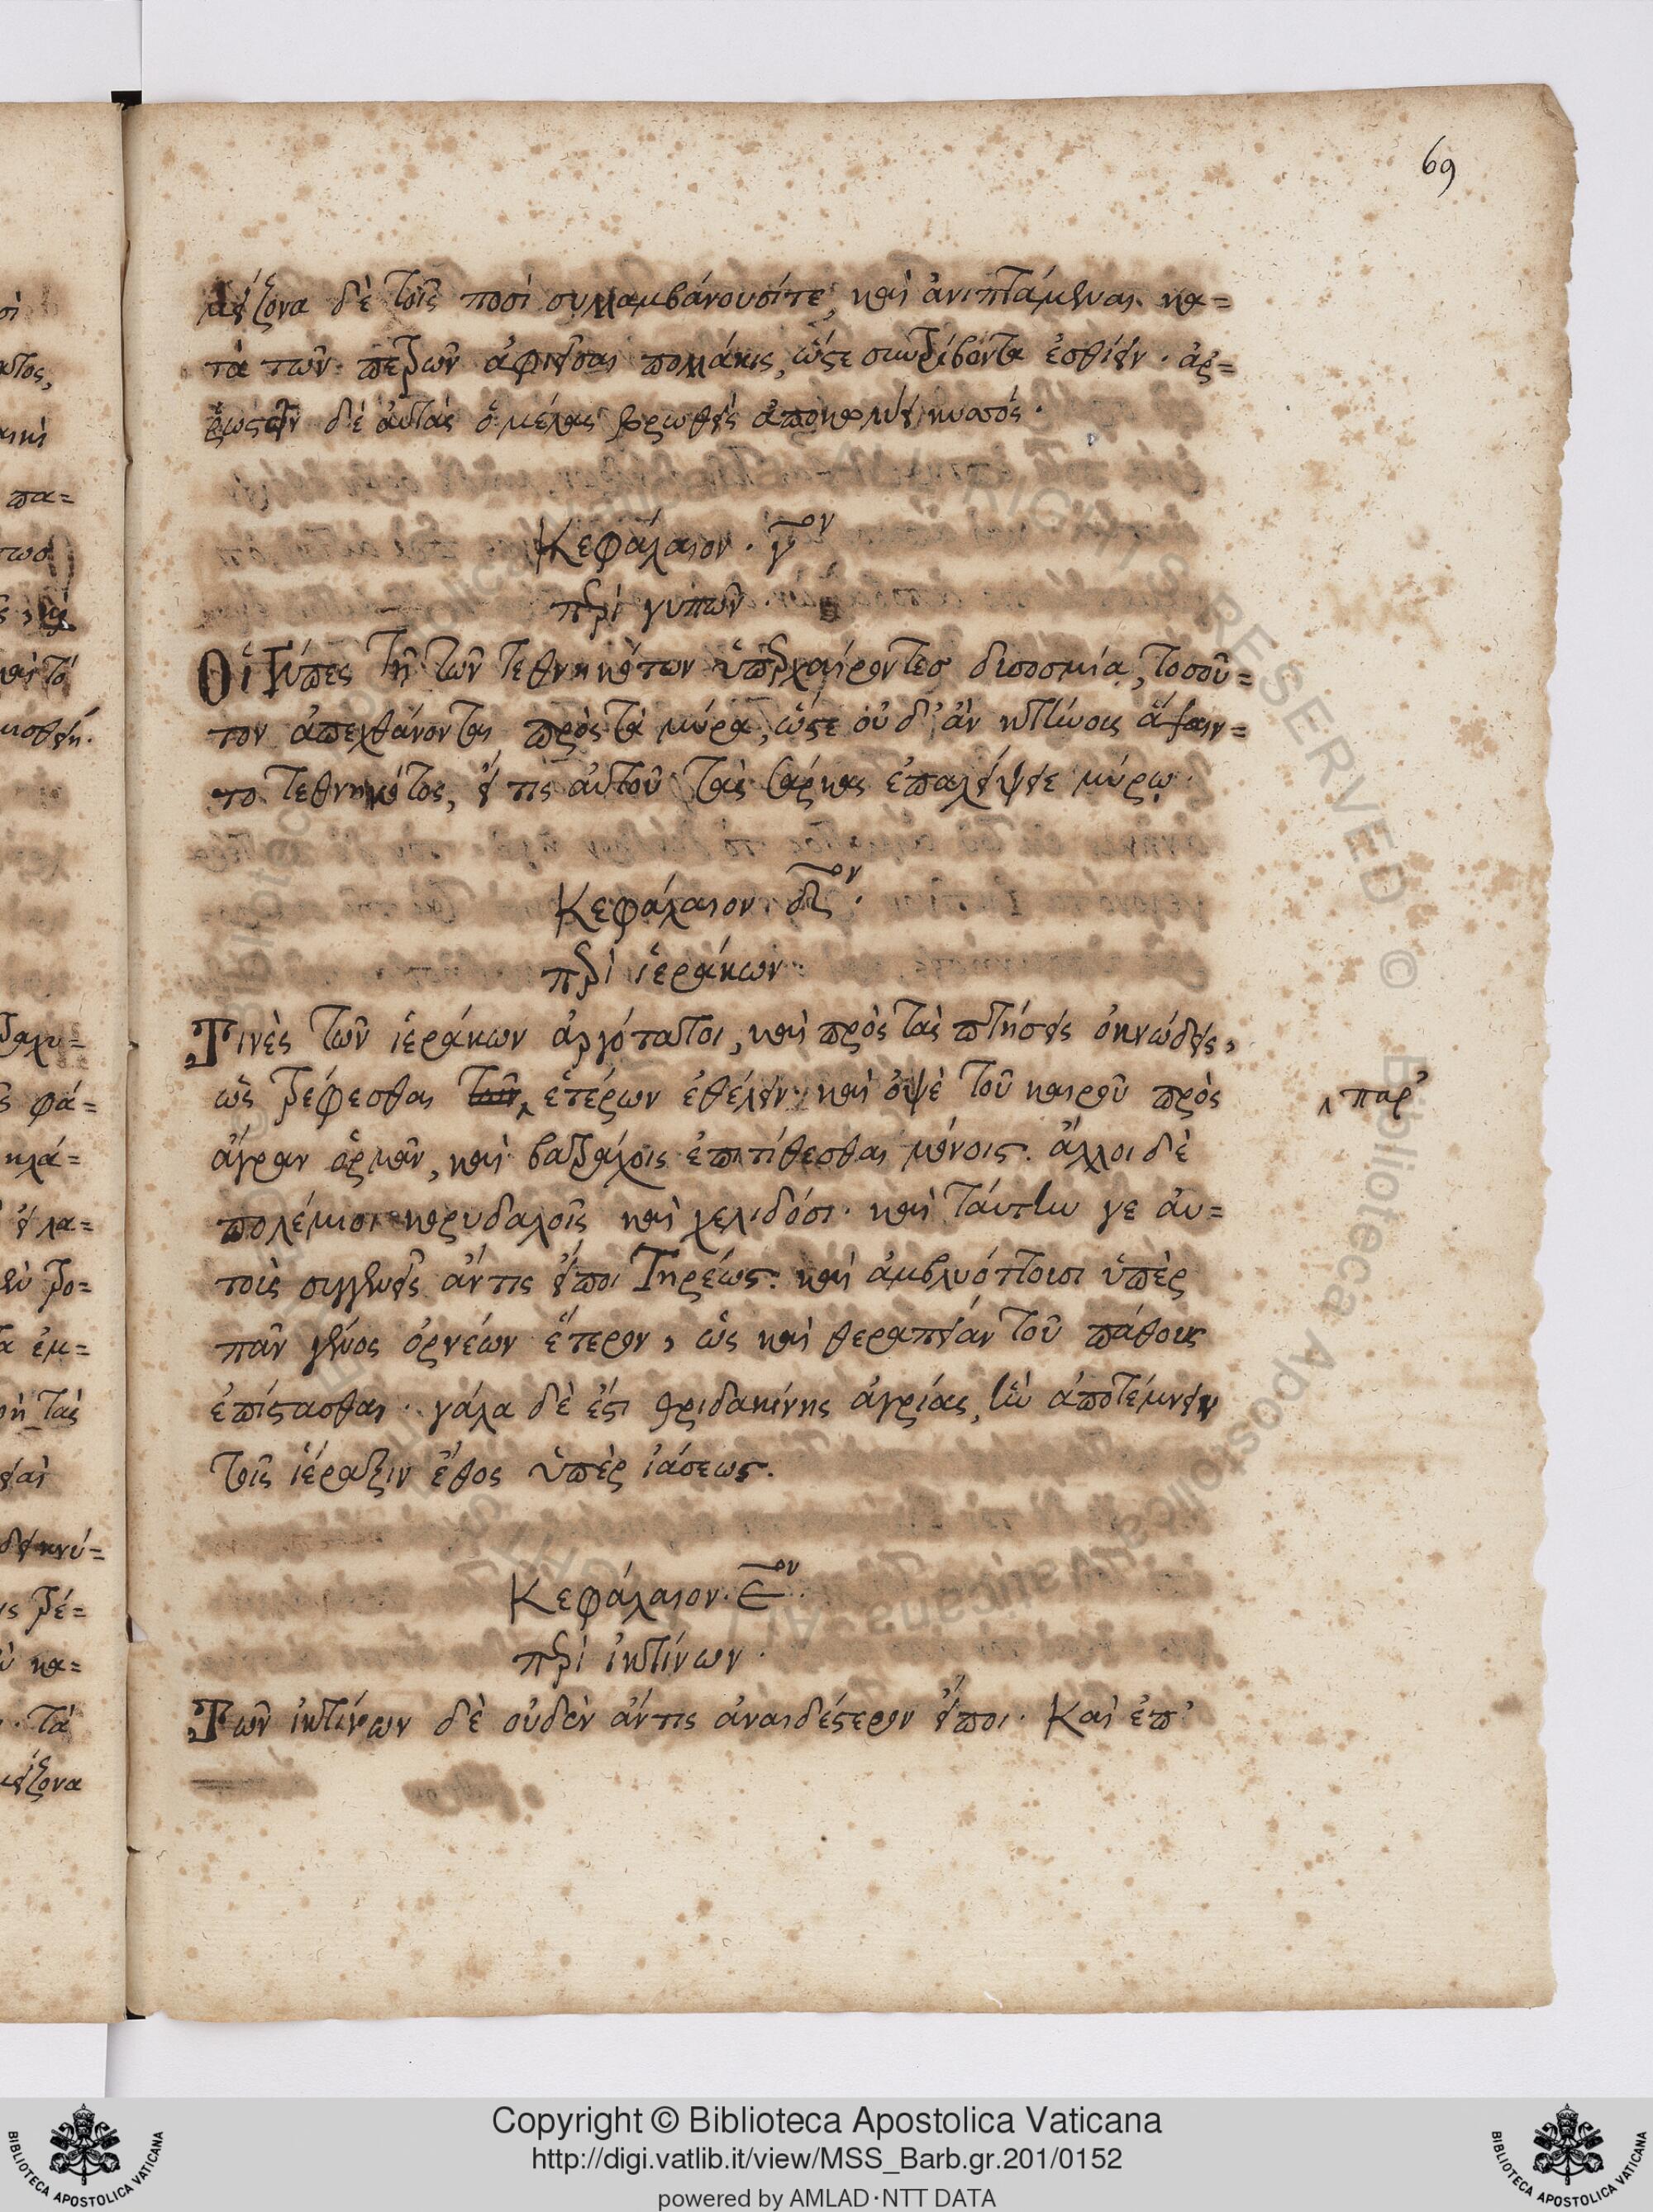 69
μείζονα δὲ τοῖς ποσὶ συλλαμβάνουσί τε, καὶ ἀνιπτάμεναι κα=
τὰ τῶν πετρῶν ἀφιεῖσαι πολλάκις, ὥστε συντρίβοντα ἐσθίειν. ἀρ=
ῥωστεῖν δὲ αὐτὰς ὁ μέλας βρωθεὶς ἀποκωλύει κυαπός.
Κεφάλαιον. γ̅ον
περὶ γυπῶν.
Οἱ Γύπες τῇ τῶν τεθνηκότων ὑπερχαίροντες δυσοσμία, τοσοῦ=
τον ἀπεχθάνονται πρὸς τὰ μύρα, ὥστε οὐδ' ἂν κτίνοις ἅψαιν=
το τεθνηκότος, εἴ τις αὐτοῦ τὰς σάρκας ἐπαλείψειε μύρῳ.
Κεφάλαιον δ̅ον.
περὶ ἱεράκων.
Τινὲς τῶν ἱεράκων ἀργότατοι, καὶ πρὸς τὰς πτήσεις ὀκνώδεις,
ὡς τρέφεσθαι ἑτέρων ἐθέλειν· καὶ ὀψὲ τοῦ καιροῦ πρὸς
‸ παρ'
ἄγραν ὁρμᾶν, καὶ βατραχοῖς ἐπιτίθεσθαι μόνοις. ἄλλοι δὲ
πολέμιοι κορυδαλοῖς καὶ χελιδόσι· καὶ ταύτην γε αὐ=
τοὶς συγγενεῖς ἄν τις εἴποι Τηρέως. καὶ ἀμβλυόττουσι ὑπὲρ
πᾶν γένος ὀρνέων ἕτερον, ὡς καὶ θεραπείαν τοῦ πάθους
ἐπίστασθαι. γάλα δὲ ἐστι θριδακίνης ἀγρίας, ἣν ἀποτέμνειν
τοῖς ἱέραξιν ἔθος ὑπὲρ ἰάσεως.
Κεφάλαιον. ε̅ον.
περὶ ἰκτίνων.
Τῶν ἰκτίνων δὲ οὐδὲν ἄν τις ἀναιδέστερον εἴποι. Καὶ ἐπ'
Copyright © Biblioteca Apostolica Vaticana
http://digi.vatlib.it/view/MSS_Barb.gr.201/0152
powered by AMLAD·NTT DATA